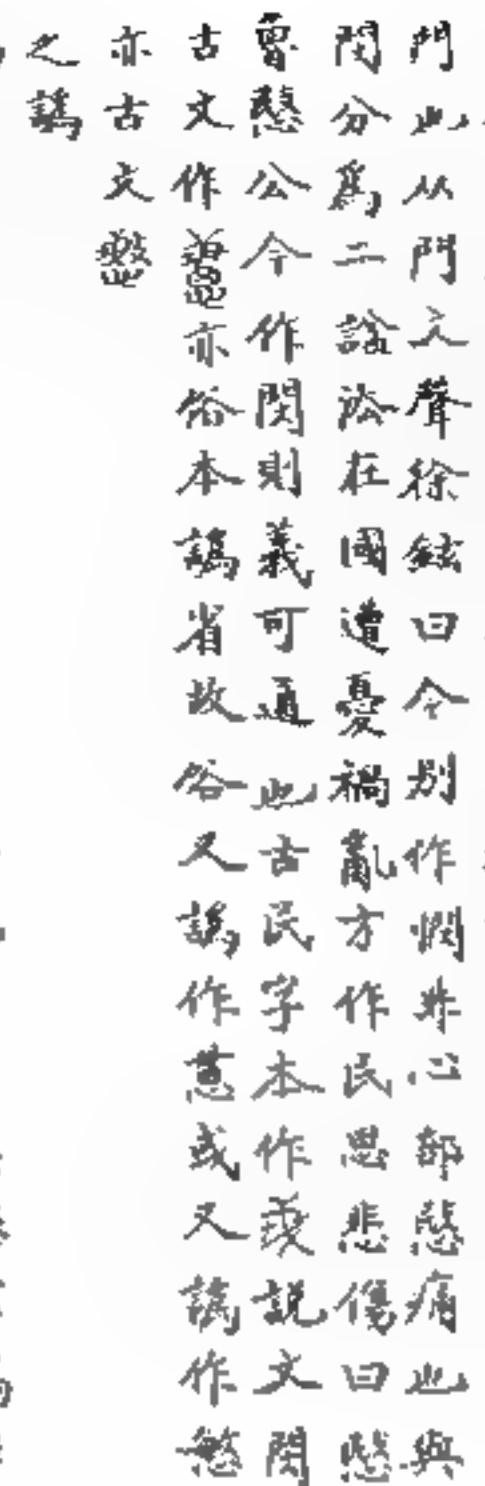 門也从門文聲徐鉉曰今别作憫非心部愍痛也與
閔分爲二諡法在國遭憂禍亂方作民思悲傷曰愍
魯愍公今作閔則義可通也古民字本作 説文閔
古文作 亦俗本譌省故俗又譌作 或又譌作慜
亦古文
之譌